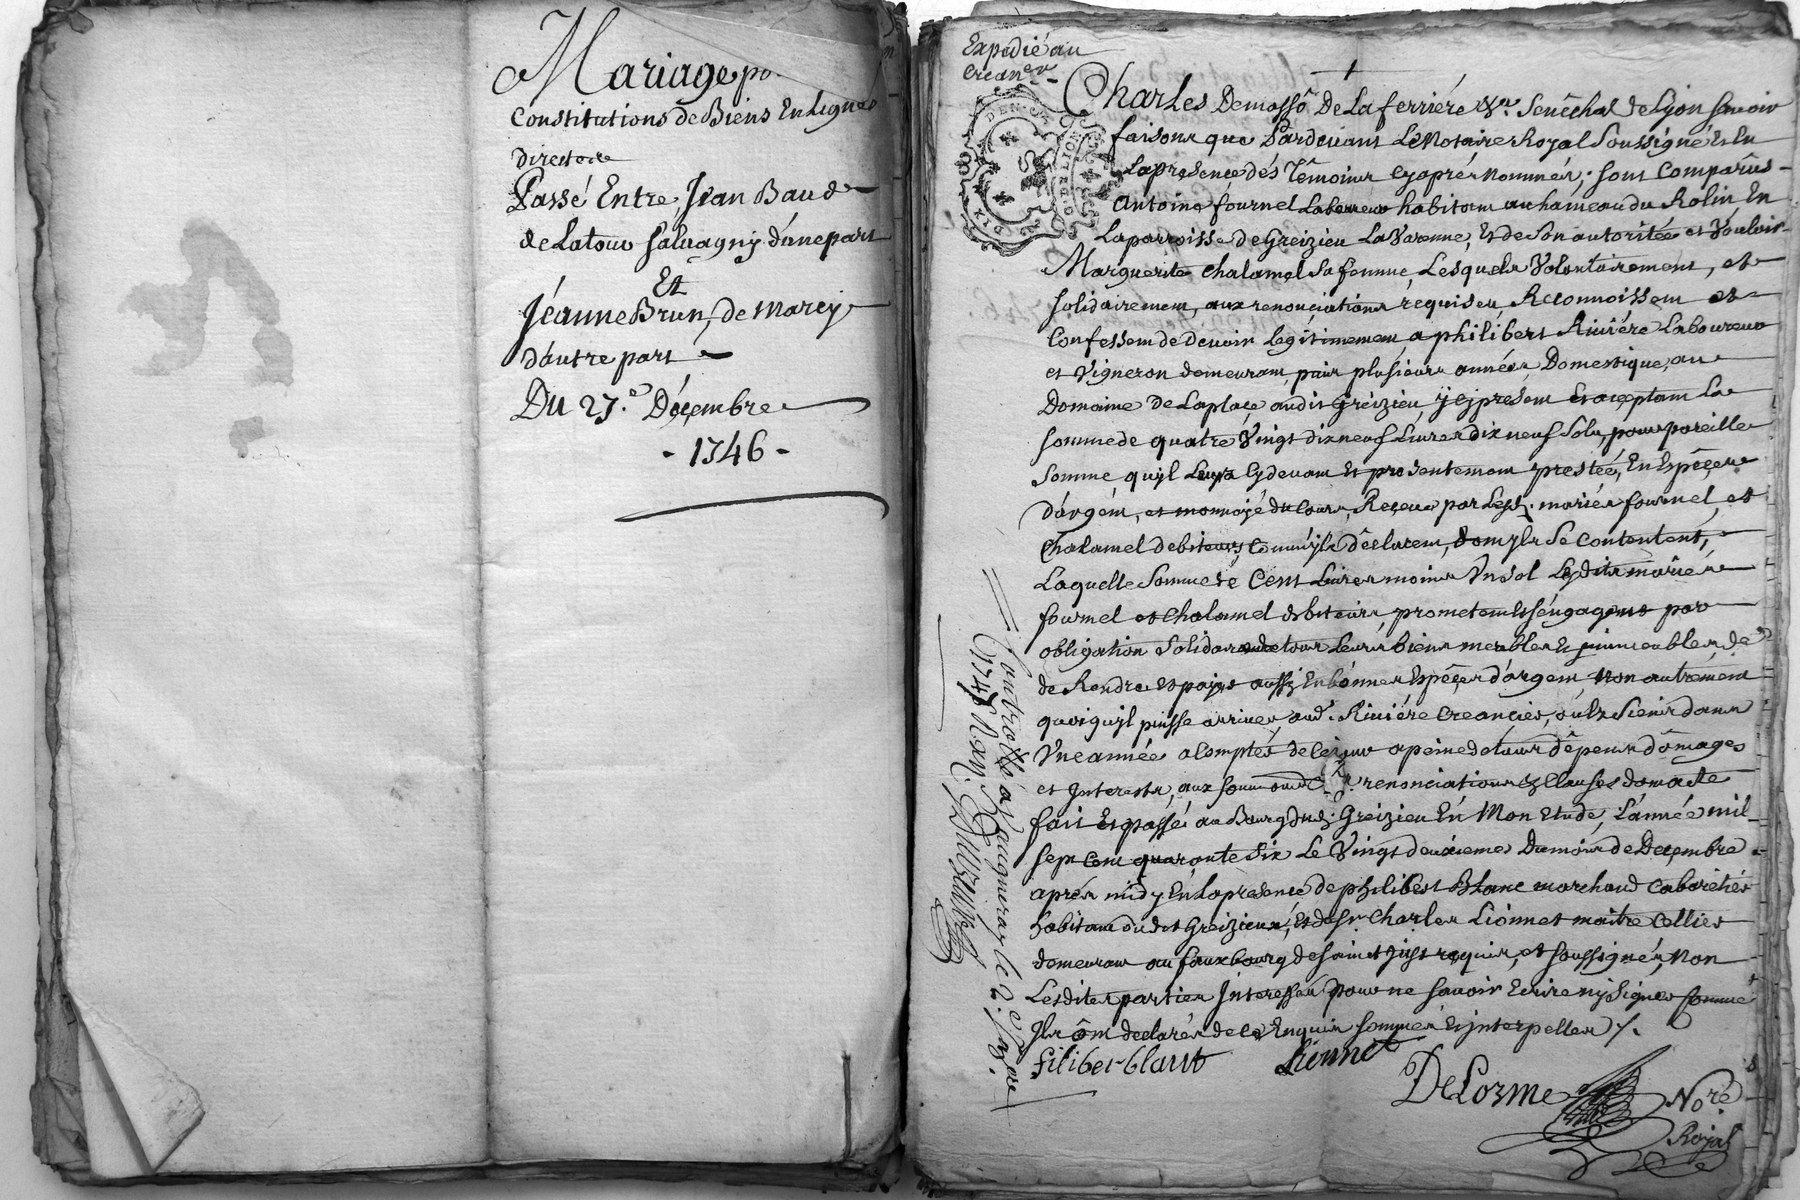 Mariage po
Constitutions de Biens En Lignes
directe
Passé Entre Jean Baud
de Latour Salvagny d'une part
Et
Jéanne Brun, de Marcy
d'autre part
Du 27.e Décembre
- 1746 -
Expedié au
Crean.er
Charles Demassô De La ferriére Ch.er Senêchal de Lyon savoir
faisons que Pardevant Le Notaire Royal Soussigné Et En
La présence dés Têmoins cyaprés Nommés, sont Comparûs
Antoine fournel Laboureur habitant au hameau du Rolin En
La parroisse de Greizieu La Varenne, Et de Son autoritée et Vouloir
Marguerite Chalamel Sa femme, Lesquels Volontairement, et
solidairement, aux renonciations requises, Reconnoissent et
Confessent de Devoir Legitimement a philibert Riviére Laboureur
et Vigneron demeurant, puis plusieurs années Domestique, au
Domaine de Laplaçe audit Greizieu, ycy present Et aceptant La
somme de quatre Vingt dixneuf Livres dix neuf Sols, pour pareille
Somme quyl Leur a Cydevant Et presentement prestée, En Espêçes
d'argént, et monnoyé du Cours, Reçeue par Lesd. mariés fournel, et
Chalamel debiteurs Comm'yls dêclarent, dont yls Se Contentent,
Laquelle Somme de Cent Livres moins Un sol Lesdits mariés
fournel et Chalamel debiteurs, prometent Et s'éngagent par
obligation Solidaire de tous Leurs biens meubles Et immeubles de
de Rendre Et payer aussy En bonnes Espêçes d'argent, Non autrement
quoiqu'yl puisse arriver aud. Riviére Creancier, ou Es Siens dans
Une année a Compter de Ce jour a peine de tous dêpens dômages
et Interests, aux renonciations & Clauses dom acte
fait Et passé au Bourg Dud. Greizieu En Mon Etude, L'année mil
sept Cent quarante Six Le Vingt deuxiemes Du mois de Deçembre
aprés midy En La présence de philibert Blanc marchand Cabaretiér
habitant dudit Greizieux, Et de Sr Charles Lionnet maitre Cellier
demeurant au fauxbourg de Sainct Just requis, et soussignés, Non
Lesdites parties Interessées pour ne savoir Ecrire ny Signer Comme
Ils ônt declarés de Ce Enquis sommés Et interpellés /.
filiber blanc Lionnet
DeLorme No.re
Royal
Controllé a Vaugneray le 2.e Jan.
1747 Reçu